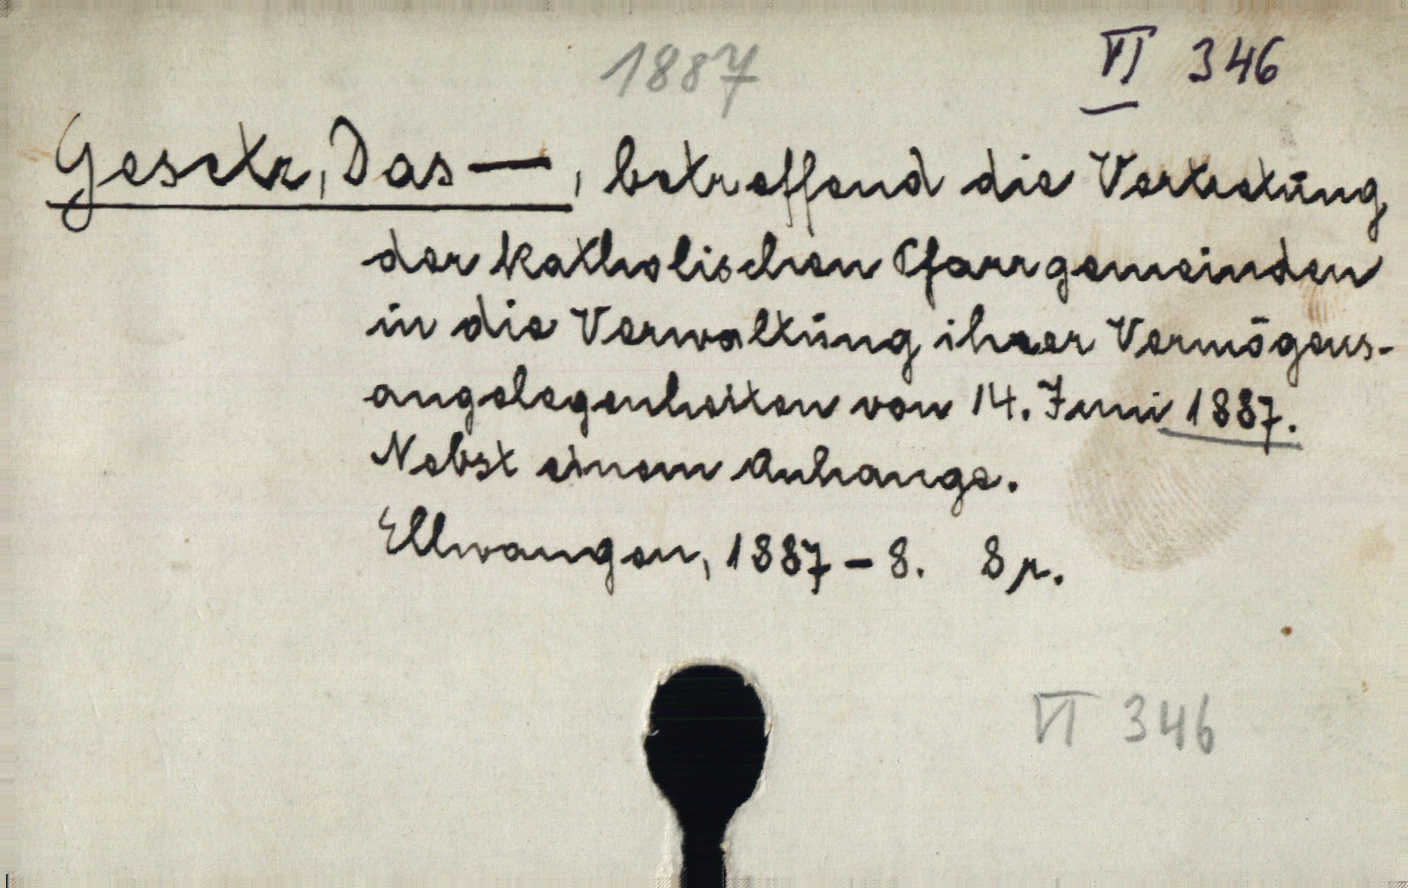 1887
VI 346
Gesetz, Das —, betreffend die Vertretung
der katholischen Pfarrgemeinden
in die Verwaltung ihrer Vermögens-
angelegenheiten von 14. Juni 1887.
Nebst einem Anhange.
Ellwangen, 1887 - 8. 8 p.
VI 346